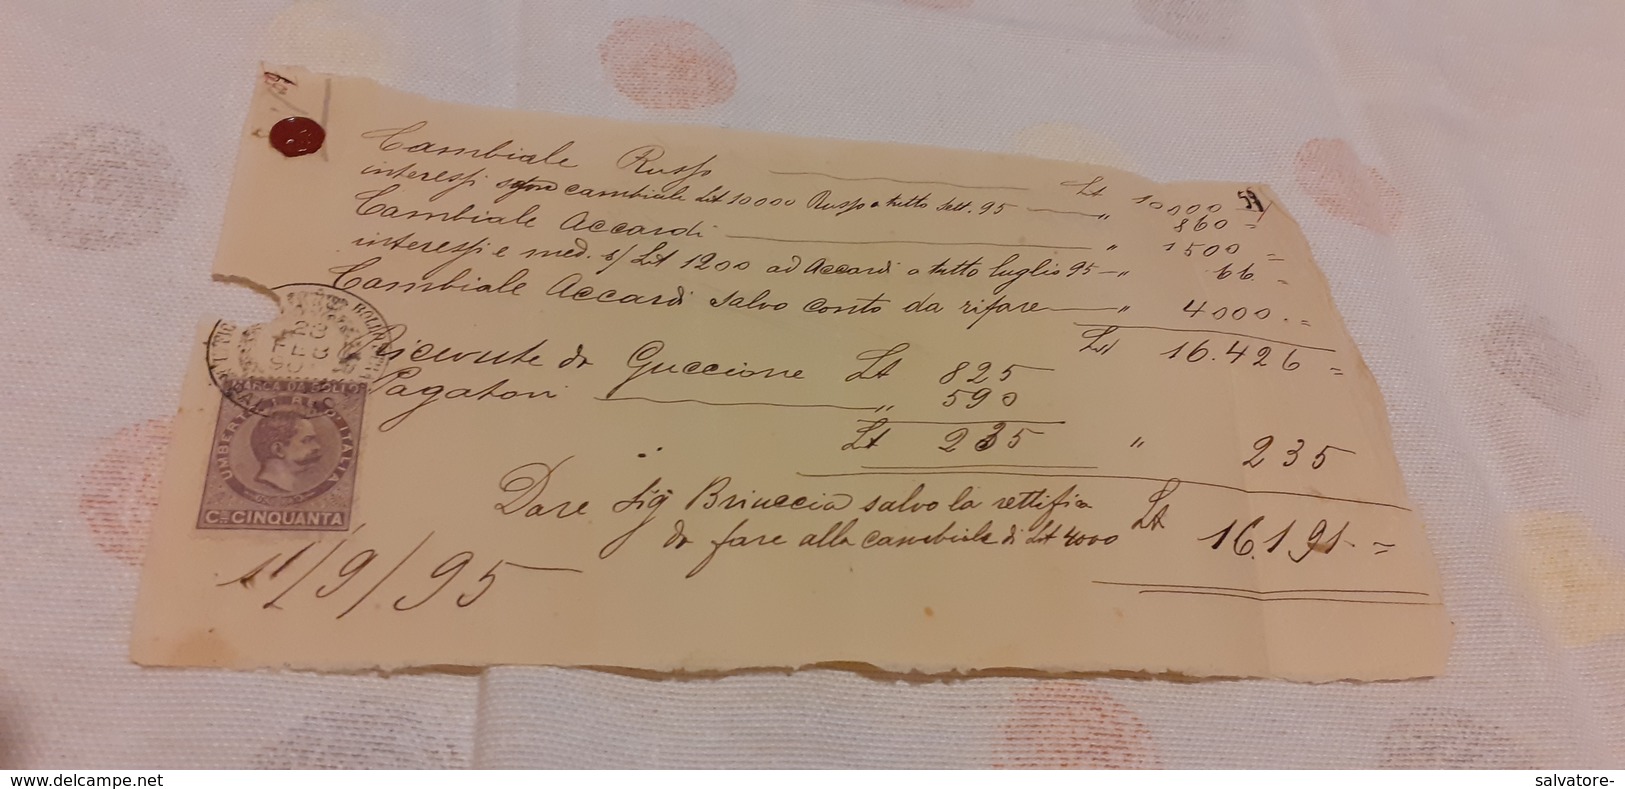 Cambiale Russo Lt 10000
interessi sopra cambiale Lit 10000 Russo a tutto Sett. 95 " 860 =
Cambiale Accardi " 1500 =
interessi e med. s/ Lit 1200 ad Accardi a tutto luglio 95 " 66 =
Cambiale Accardi salvo conto da rifare " 4000. =
Lit 16.426 =
Ricevute da Guccione Lt 825
Pagatori " 590
Lt 235 " 235
Dare Sig Briuccia salvo la rettifica
da fare alla cambiale di Lit 4000 Lt 16.191. =
11/9/95
23
MARCA DA BOLLO
UMBERTO I RE D'ITALIA
CMI CINQUANTA
www.delcampe.net
salvatore-